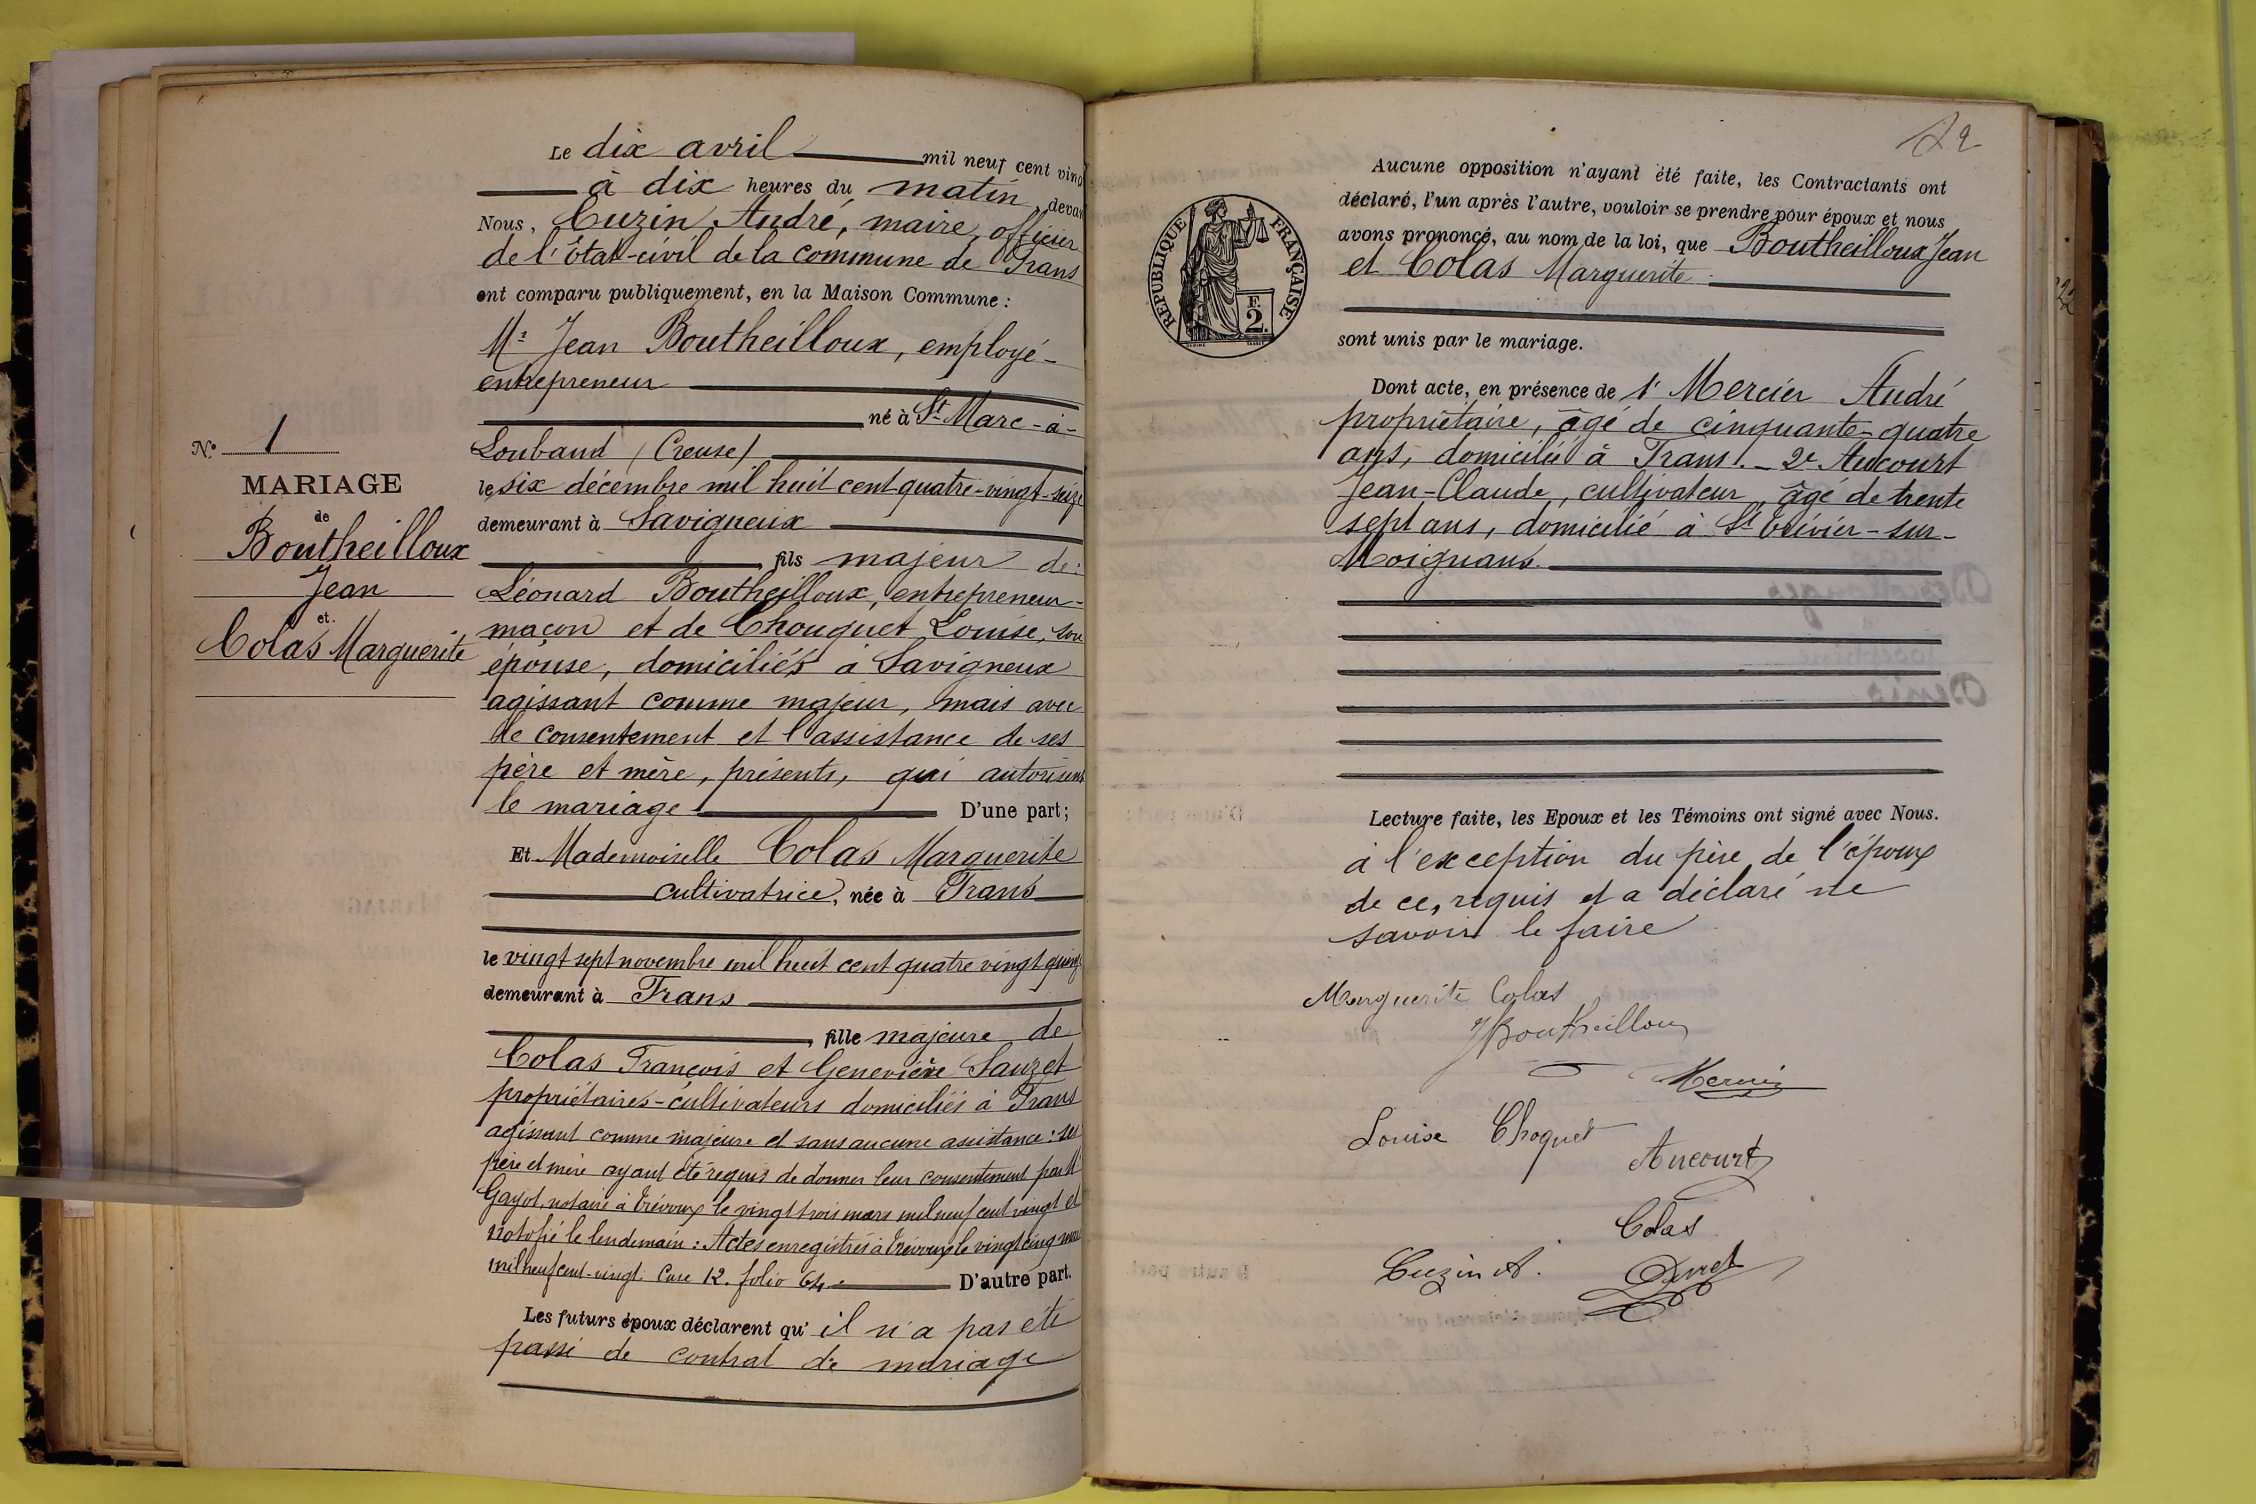 N.° 1
MARIAGE
de
Boutheilloux
Jean
et
Colas Marguerite
Le dix avril mil neuf cent ving
à dix heures du matin, devan
Nous, Cuzin André, maire, officier
de l'État-civil de la commune de Trans
ont comparu publiquement, en la Maison Commune :
Mr Jean Boutheilloux, employé-
entrepreneur
né à St Marc-à-
Loubaud (Creuse)
le six décembre mil huit cent quatre-vingt-seize
demeurant à Savigneux
fils majeur de :
Léonard Boutheilloux, entrepreneur-
maçon et de Chouquet Louise, son
épouse, domiciliés à Savigneux
agissant comme majeur, mais avec
le consentement et l'assistance de ses
père et mère, présents, qui autorisent
le mariage D'une part;
Et Mademoiselle Colas Marguerite
cultivatrice, née à Trans
le vingt sept novembre mil huit cent quatre vingt quinz
demeurant à Trans
, fille majeure de
Colas François et Geneviève Sauzet
propriétaires-cultivateurs domiciliés à Trans
agissant comme majeure et sans aucune assistance : ses
père et mère ayant été requis de donner leur consentement par Me
Gayot, notaire à Trévoux le vingt trois mars mil neuf cent vingt et
notifié le lendemain : Actes enregistrés à Trévoux le vingt cinq mars
mil neuf cent-vingt. Case 12. folio 64. D'autre part.
Les futurs époux déclarent qu' il n'a pas été
passé de contrat de mariage
12
REPUBLIQUE FRANÇAISE
F.
2.
Aucune opposition n'ayant été faite, les Contractants ont
déclaré, l'un après l'autre, vouloir se prendre pour époux et nous
avons prononcé, au nom de la loi, que Boutheilloux Jean
et Colas Marguerite
sont unis par le mariage.
Dont acte, en présence de 1° Mercier André
propriétaire, âgé de cinquante-quatre
ans, domicilié à Trans. - 2e Aucourt
Jean-Claude, cultivateur, âgé de trente
sept ans, domicilié à St Trivier-sur-
Moignans.
Lecture faite, les Epoux et les Témoins ont signé avec Nous.
à l'exception du père de l'époux
de ce, requis et a déclaré ne
savoir le faire
Marguerite Colas
J Boutheilloux
Mercier
Louise Choquet
Aucourt
Colas
Cuzin A.
22